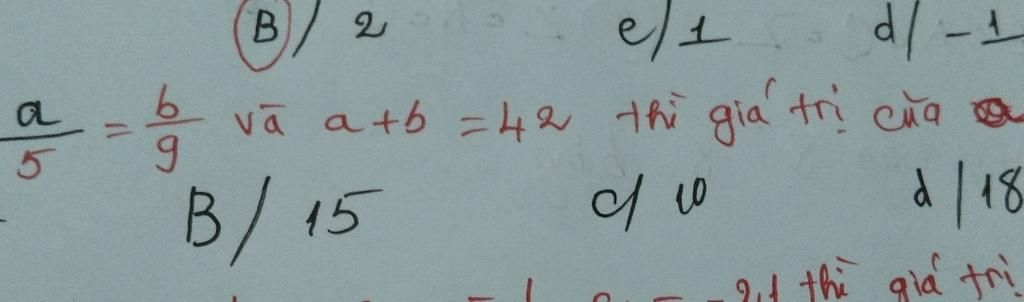 B/ 2 c/ 1 d/ -1
a/5 = b/9 và a+b = 42 thì giá trị của a
B/ 15 c/ 10 d/ 18
= -2,1 thì giá trị